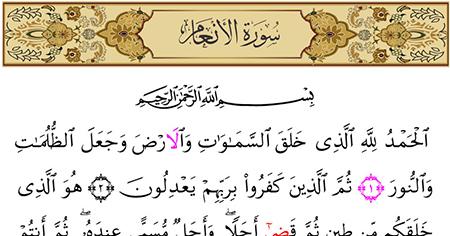 سُورَةُ الأَنْعَام
بِسْمِ ٱللَّهِ ٱلرَّحْمَٰنِ ٱلرَّحِيمِ
ٱلْحَمْدُ لِلَّهِ ٱلَّذِى خَلَقَ ٱلسَّمَٰوَٰتِ وَٱلْأَرْضَ وَجَعَلَ ٱلظُّلُمَٰتِ
وَٱلنُّورَ ﴿١﴾ ثُمَّ ٱلَّذِينَ كَفَرُوا۟ بِرَبِّهِمْ يَعْدِلُونَ ﴿٢﴾ هُوَ ٱلَّذِى
خَلَقَكُم مِّن طِينٍ ثُمَّ قَضَىٰٓ أَجَلًا ۖ وَأَجَلٌ مُّسَمًّى عِندَهُۥ ۖ ثُمَّ أَنتُمْ